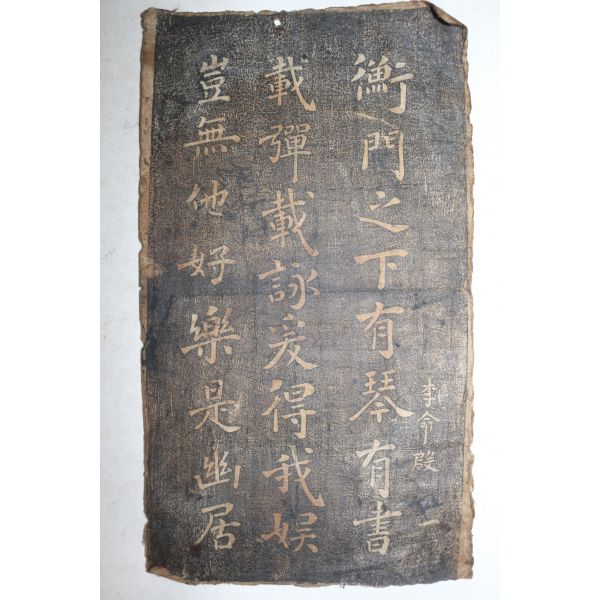 衡門之下有琴有書
載彈載詠爰得我娛
豈無他好樂是幽居
李命殷